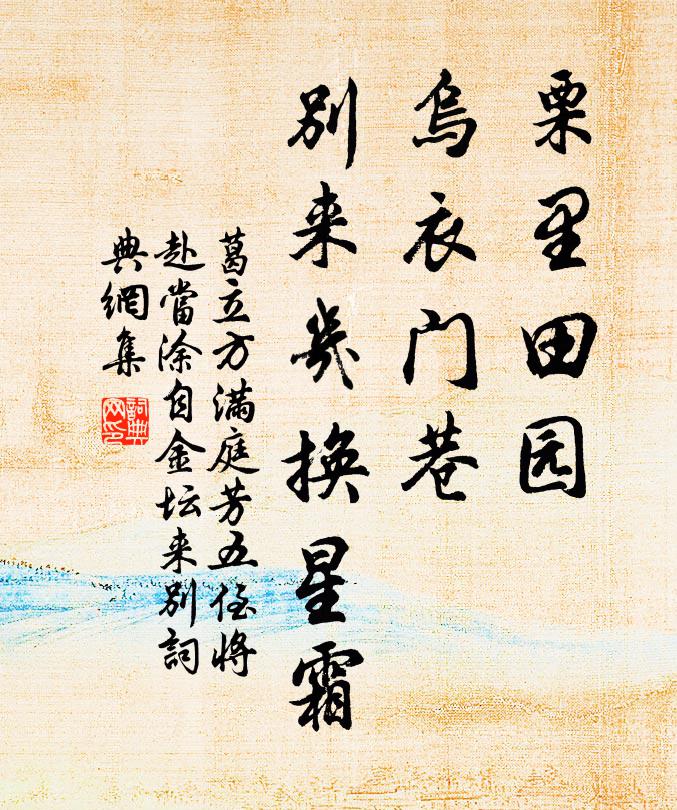 栗里田园
乌衣门巷
别来几换星霜
葛立方满庭芳五侄将
赴當涂自金坛来别詞
典網集
詞典
网印